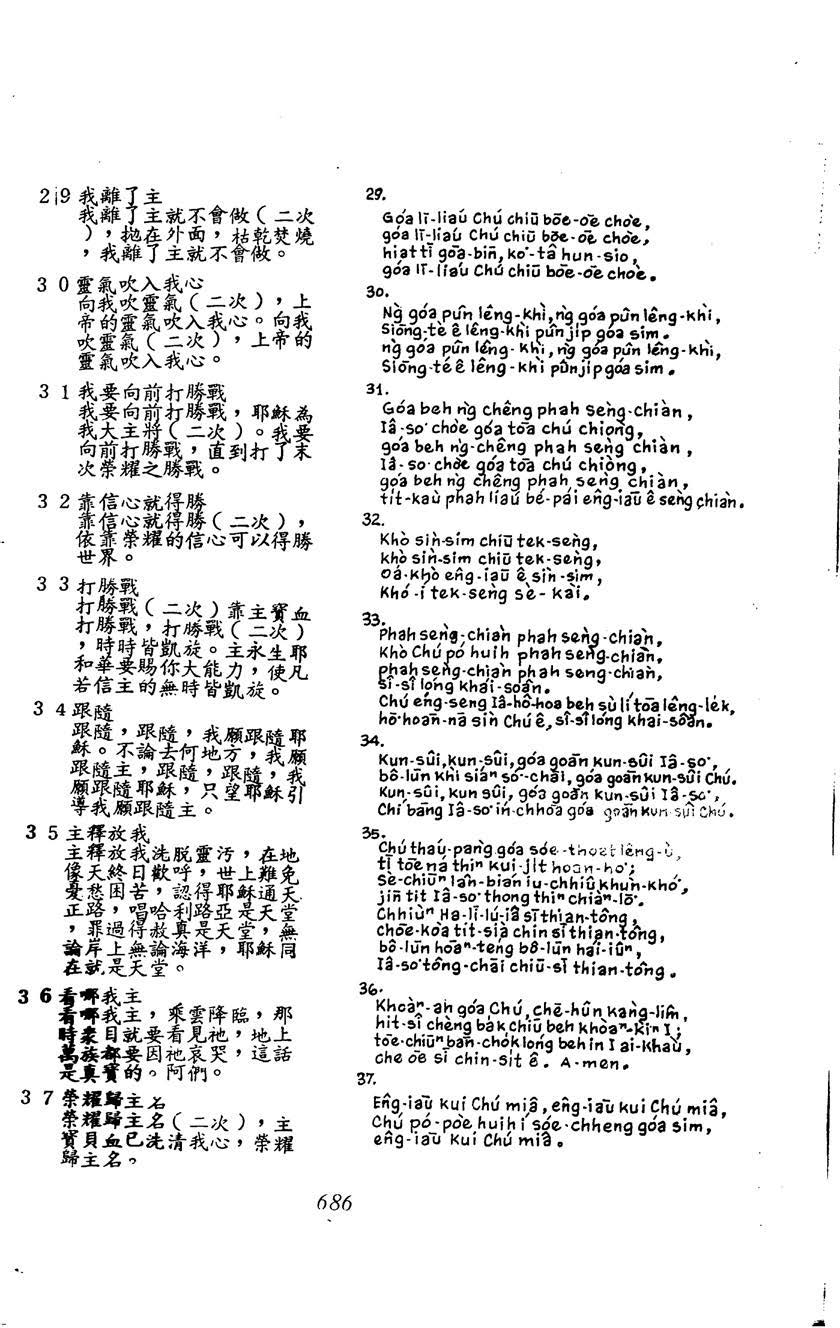 29我離了主
我離了主就不會做（二次
），拋在外面，枯乾焚燒
，我離了主就不會做。
30靈氣吹入我心
向我吹靈氣（二次），上
帝的靈氣吹入我心。向我
吹靈氣（二次），上帝的
靈氣吹入我心。
31我要向前打勝戰
我要向前打勝戰，耶穌為
我大主將（二次）。我要
向前打勝戰，直到打了末
次榮耀之勝戰。
32靠信心就得勝
靠信心就得勝（二次），
依靠榮耀的信心可以得勝
世界。
33打勝戰
打勝戰（二次）靠主寶血
打勝戰，打勝戰（二次）
，時時皆凱旋。主永生耶
和華要賜你大能力，使凡
若信主的無時皆凱旋。
34跟隨
跟隨，跟隨，我願跟隨耶
穌。不論去何地方，我願
跟隨主，跟隨，跟隨，我
願跟隨耶穌，只望耶穌引
導我願跟隨主。
35主釋放我
主釋放我洗脫靈污，在地
像天終日歡呼，世上難免
憂愁困苦，認得耶穌通天
正路，唱哈利路亞是天堂
，罪過得赦真是天堂，無
論岸上無論海洋，耶穌同
在就是天堂。
36看哪我主
看哪我主，乘雲降臨，那
時眾目就要看見祂，地上
萬族都要因祂哀哭，這話
是真實的。阿們。
37榮耀歸主名
榮耀歸主名（二次），主
寶貝血已洗清我心，榮耀
歸主名。
29.
Góa lī-liáu Chú chiū bōe-ōe chòe,
góa lī-liáu Chú chiū bōe-ōe chòe,
hiat tī gōa-bīn, ko͘-tâ hun-sio,
góa lī-liáu Chú chiū bōe-ōe chòe.
30.
Ǹg góa pûn lêng-khì, ǹg góa pûn lêng-khì,
Siōng-tè ê lêng-khì pûn jip góa sim.
ǹg góa pûn lêng-khì, ǹg góa pûn lêng-khì,
Siōng-tè ê lêng-khì pûn jip góa sim.
31.
Góa beh ǹg chêng phah sèng-chiàn,
Iâ-so͘ chòe góa tōa chú chiòng,
góa beh ǹg-chêng phah sèng chiàn,
Iâ-so͘ chòe góa tōa chú chiòng,
góa beh ǹg chêng phah sèng chiàn,
tit-kàu phah liáu bé-pái êng-iāu ê sèng chiàn.
32.
Khò sìn-sim chiū tek-sèng,
khò sìn-sim chiū tek-sèng,
Oá-khò êng-iāu ê sìn-sim,
Khó-í tek-sèng sè-kài.
33.
Phah sèng-chiàn phah sèng-chiàn,
Khò Chú pó huih phah sèng-chiàn,
phah sèng-chiàn phah sèng-chiàn,
sî-sî lóng khái-soân.
Chú éng-seng Iâ-hô-hoa beh sù lí tōa lêng-le̍k,
hō͘-hoān-nā sìn Chú ê, sî-sî lóng khái-soân.
34.
Kun-sûi, kun-sûi, góa goān kun-sûi Iâ-so͘,
bô-lūn khì siáⁿ só͘-chāi, góa goān kun-sûi Chú.
Kun-sûi, kun sûi, góa goān kun-sûi Iâ-so͘,
Chí bāng Iâ-so͘ ín-chhōa góa goān kun-sûi Chú.
35.
Chú tháu-pàng góa sóe-thoat lêng-ù,
tī tōe ná thiⁿ kui-jit hoan-ho͘;
Sè-chiūⁿ lân-bián iu-chhiû khùn-khó͘,
jīn tit Iâ-so͘ thong thiⁿ chiàⁿ-lō͘.
Chhiùⁿ Ha-lī-lú-iâ sī thian-tông,
chōe-kòa tit-sià chin sī thian-tông,
bô-lūn hōaⁿ-téng bô-lūn hái-iûⁿ,
Iâ-so͘ tông-chāi chiū-sī thian-tông.
36.
Khòaⁿ-ah góa Chú, chē-hûn kàng-lîm,
hit-sî chèng ba̍k chiū beh khòaⁿ-kìn I;
tōe-chiūⁿ bān-cho̍k lóng beh in I ai-khàu,
che ōe sī chin-sit ê. A-men.
37.
Êng-iāu kui Chú miâ, êng-iāu kui Chú miâ,
Chú pó-pòe huih í sóe-chheng góa sim,
êng-iāu kui Chú miâ.
686